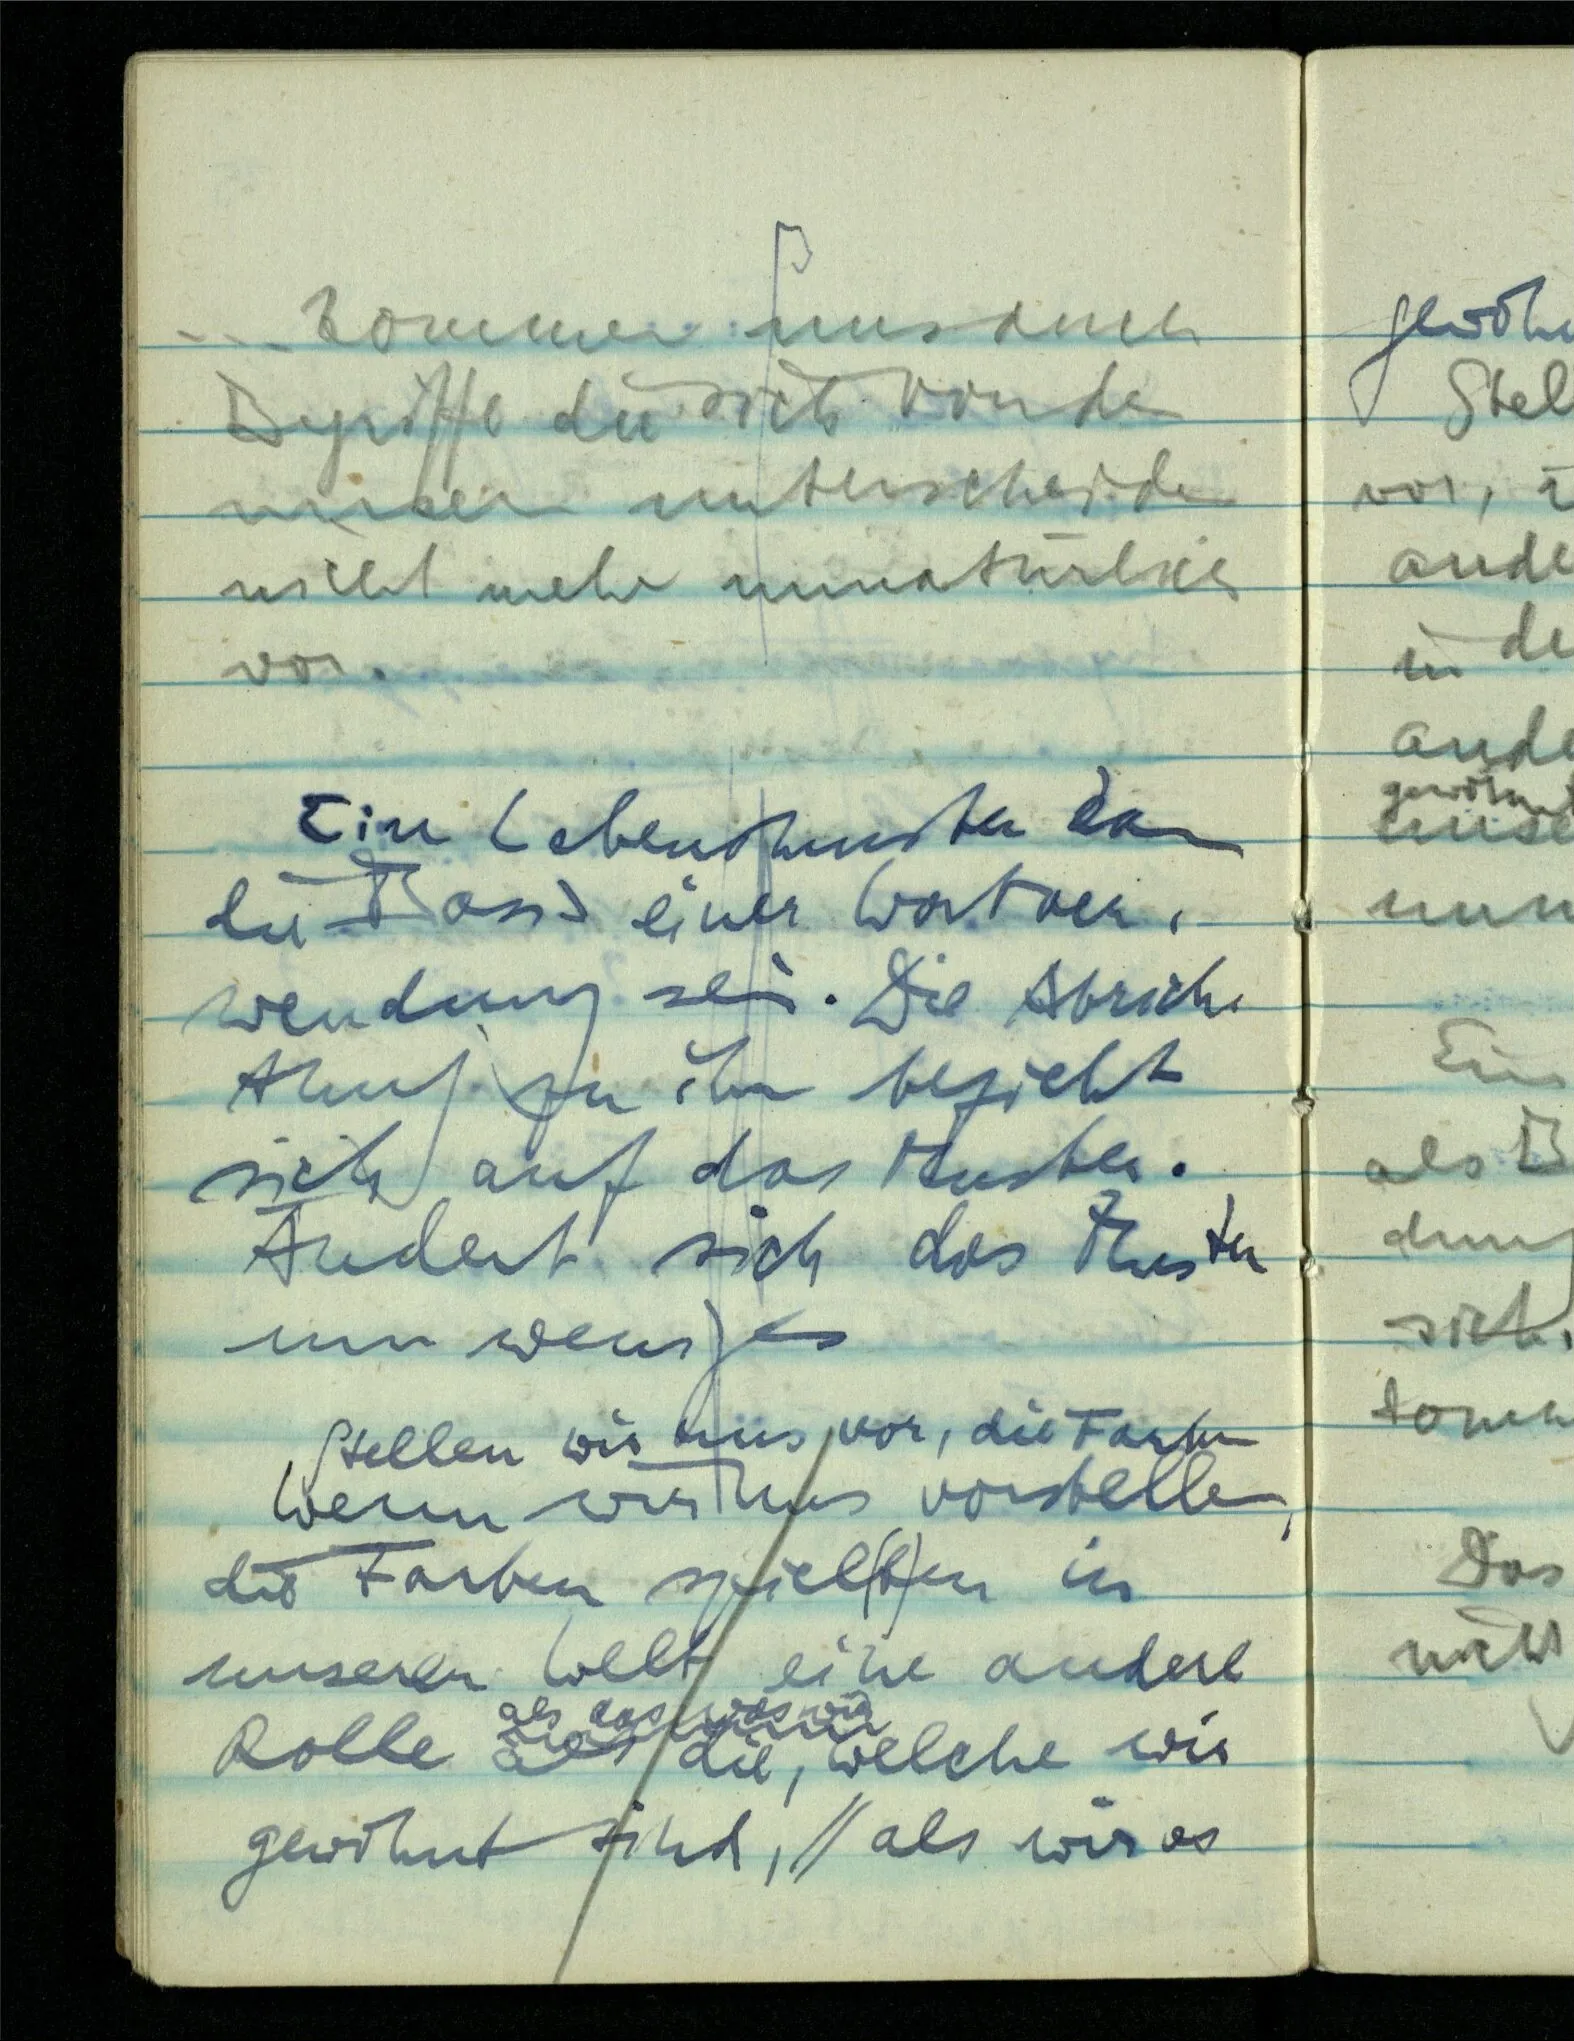 ... kommen uns auch
Begriffe die sich von de
unsern unterscheiden
nicht mehr unnatürlich
vor.
Ein Lebensmuster kann
die Basis einer Wortver-
wendung sein. Die Abrich-
tung zu ihr bezieht
sich auf das Muster.
Ändert sich das Muster
um weniges
Stellen wir uns vor, die Farben
Wenn wir uns vorstellen,
die Farben spiel(t)en in
unserer Welt eine andere
als das was wir
Rolle als die, welche wir
gewöhnt sind, // als wir es
gewöh
Stel
vor,
ande
in de
ande
gewöhnt
unse
nun
Ein
als B
dung
sich.
komm
Das
nicht